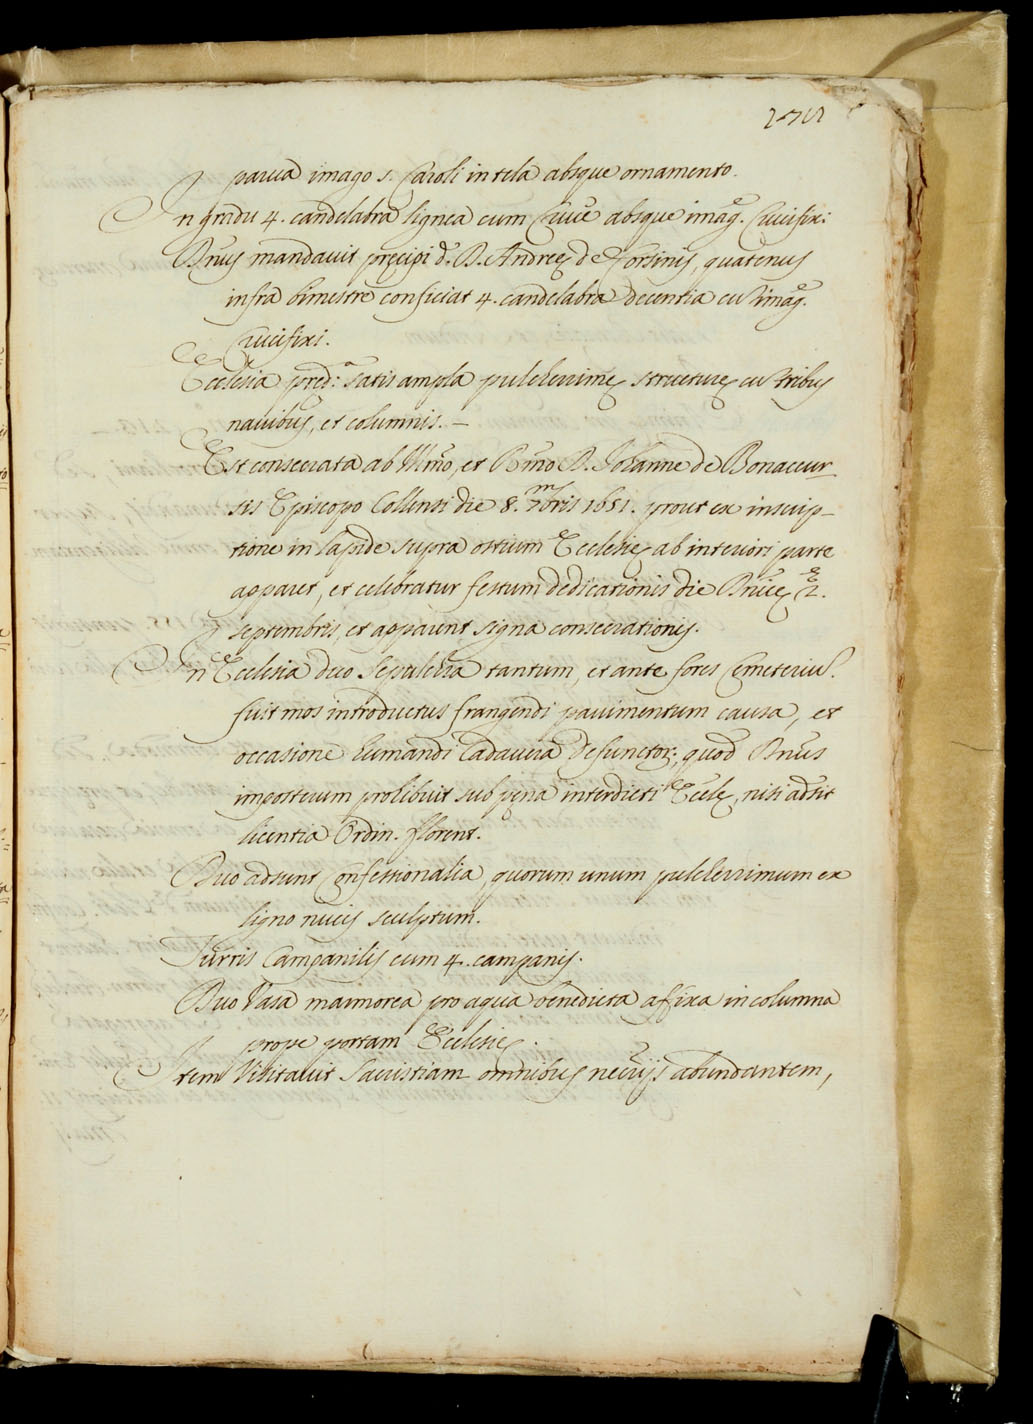 parua imago s. Caroli in tela absque ornamento.
In gradu 4. candelabra lignea cum Cruce absque imag.e Crucifixi:
D.nus mandauit precipi d.o D. Andreę de Forsinis, quatenus
infra bimestre conficiat 4. candelabra decentia cu imag.e
Crucifixi.
Ecclesia pred.a: satis ampla pulcherrimę structurę cu tribus
nauibus, et columnis. –
Est consecrata ab Ill.mo, et R.mo D. Iohanne de Bonaccur_
sis Episcopo Collensi die 8. 7mbris 1651. prout ex inscrip_
tione in lapide supra ostium Ecclesię ab interiori parte
apparet, et celebratur festum dedicationis die D.nicę 2.ę
septembris, et apparent signa consecrationis.
In Ecclesia duo sepulchra tantum, et ante fores Cemeteriu.
fuit mos introductus frangendi pauimentum causa, et
occasione humandi Cadauera defunctor:, quod D.nus
imposterum prohibuit sub pęna interdicti Ecclę, nisi adsit
licentia Ordin. florent.
Duo adsunt Confessionalia, quorum unum pulcherrimum ex
ligno nucis sculptum.
Turris Campanilis cum 4. campanis.
Duo Vasa marmorea pro aqua benedicta affixa in columna
prope portam Ecclesię.
Item Visitauit Sacristiam omnibus necrijs abundantem,